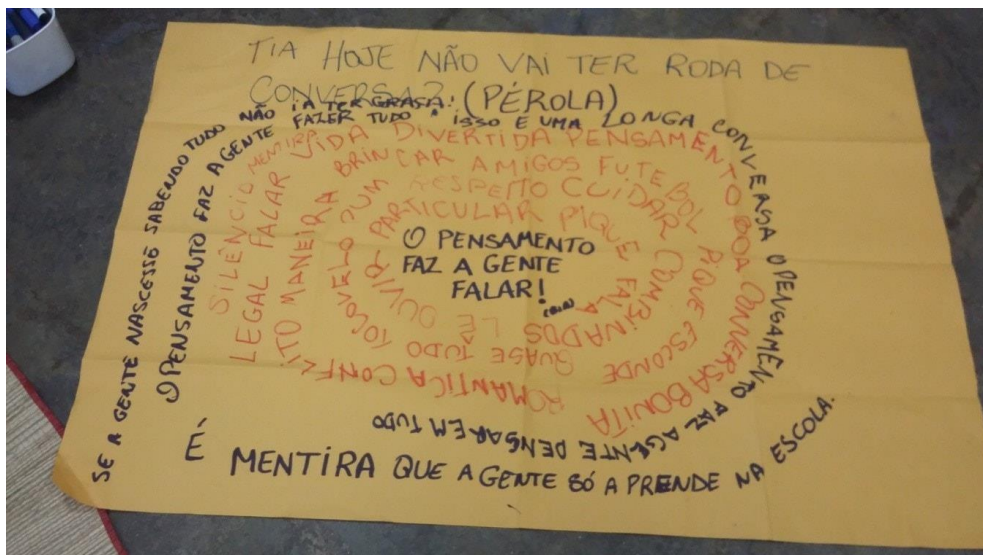 TIA HOJE NÃO VAI TER RODA DE
CONVERSA? (PÉROLA)
SE A GENTE NASCESSE SABENDO TUDO NÃO IA TER GRAÇA!
O PENSAMENTO FAZ A GENTE FAZER TUDO
ISSO É UMA LONGA CONVERSA O PENSAMENTO FAZ A GENTE PENSAR EM TUDO
SILÊNCIO MENTIRA VIDA DIVERTIDA PENSAMENTO BOA CONVERSA BONITA ROMANTICA CONFLITO MANEIRA
LEGAL FALAR
BRINCAR AMIGOS FUTEBOL PIQUE ESCONDE QUASE TUDO
RESPEITO CUIDAR COMBINADOS LÊ OUVIR PARTICULAR PIQUE FALA
O PENSAMENTO
FAZ A GENTE
FALAR!
É MENTIRA QUE A GENTE SÓ APRENDE NA ESCOLA.